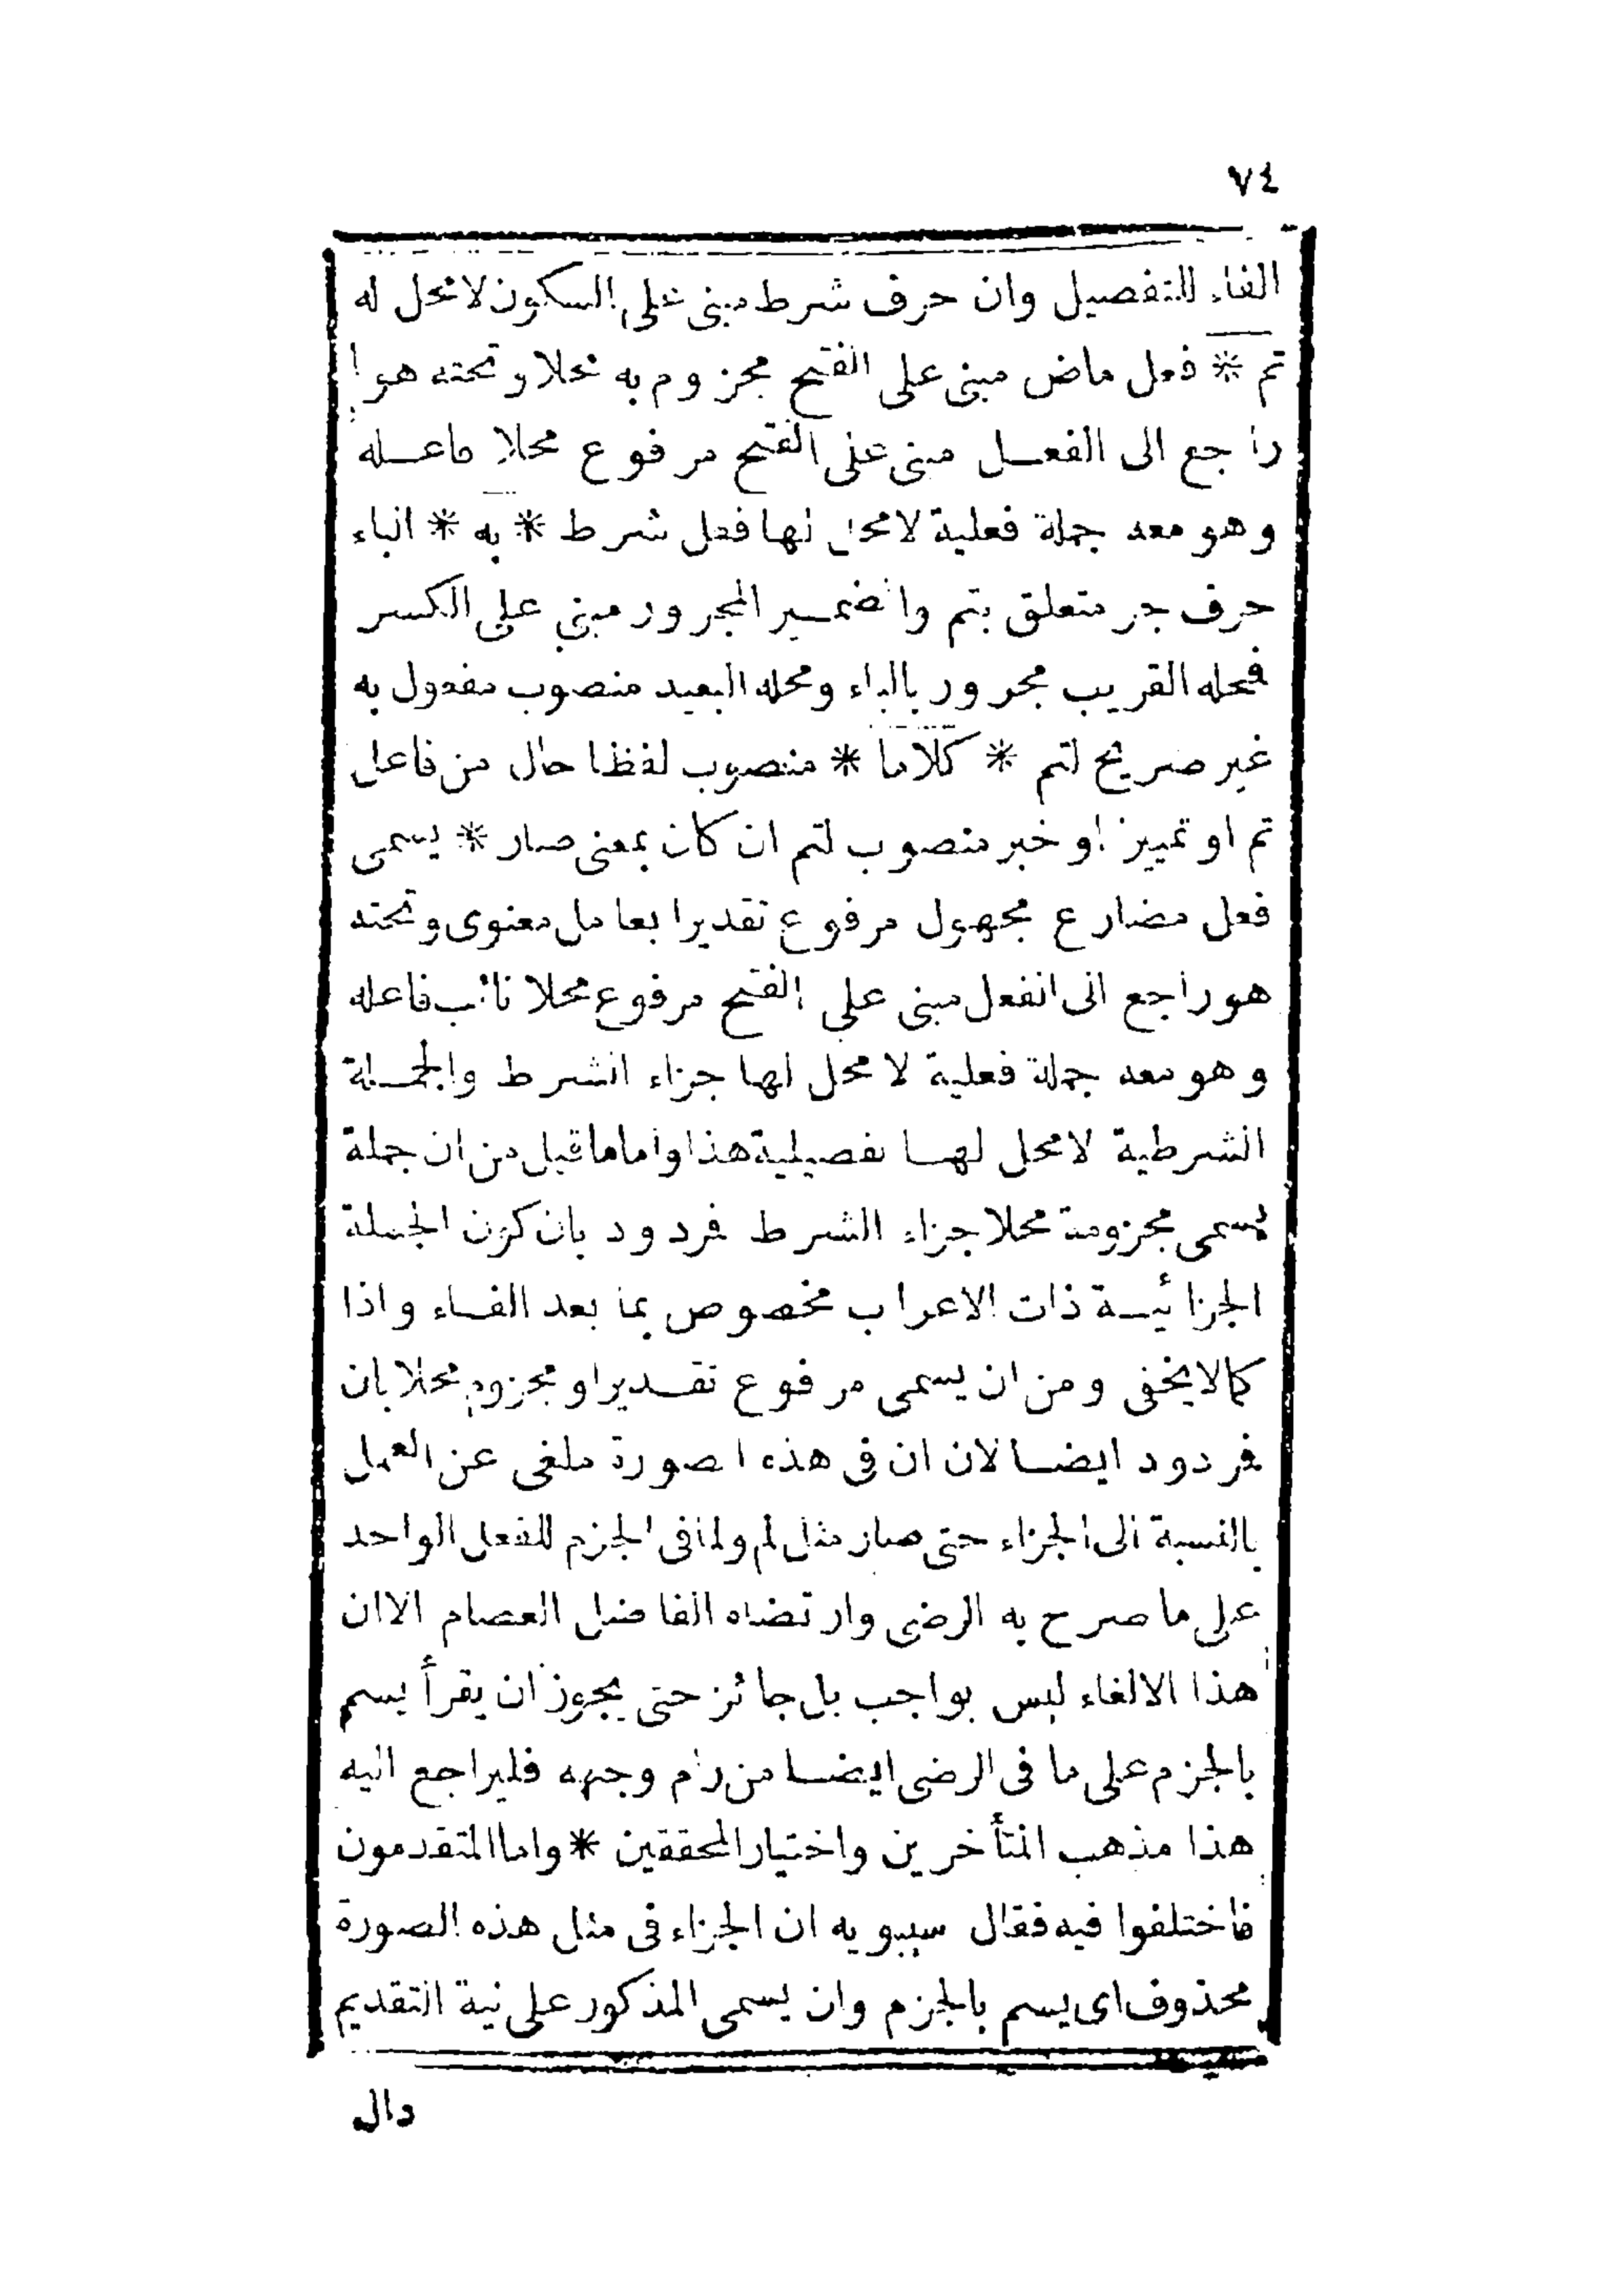 ٧٤
الفاء للتفصيل وان حرف شرط مبنى على السكون لا محل له
تم * فعل ماض مبنى على الفتح مجزوم به محلا وتحته هو
راجع الى الفعل مبنى على الفتح مرفوع محلا فاعله
وهو معه جملة فعلية لا محل لها فعل شرط * به * الباء
حرف جر متعلق بتم والضمير المجرور مبنى على الكسر
فمحله القريب مجرور بالباء ومحله البعيد منصوب مفعول به
غير صريح لتم * كلاما * منصوب لفظا حال من فاعل
تم او تمييز او خبر منصوب لتم ان كان بمعنى صار * يسمى
فعل مضارع مجهول مرفوع تقديرا بعامل معنوى وتحته
هو راجع الى الفعل مبنى على الفتح مرفوع محلا نائب فاعله
وهو معه جملة فعلية لا محل لها جزاء الشرط والجملة
الشرطية لا محل لها تفصيلية هذا واما ما قيل من ان جملة
يسمى مجزومة محلا جزاء الشرط فردود بان كون الجملة
الجزائية ذات الاعراب مخصوص بما بعد الفاء واذا
كما لا يخفى ومن ان يسمى مرفوع تقديرا ومجزوم محلا بان
فردود ايضا لان ان فى هذه الصورة ملغى عن العمل
بالنسبة الى الجزاء حتى صار مثل لم ولما فى الجزم للفعل الواحد
على ما صرح به الرضى وارتضاه الفاضل العصام الا ان
هذا الالغاء ليس بواجب بل جائز حتى يجوز ان يقرأ يسم
بالجزم على ما فى الرضى ايضا من رام وجهه فليراجع اليه
هذا مذهب المتأخرين واختيار المحققين * واما المتقدمون
فاختلفوا فيه فقال سيبويه ان الجزاء فى مثل هذه الصورة
محذوف اى يسم بالجزم وان يسمى المذكور على نية التقديم
دال